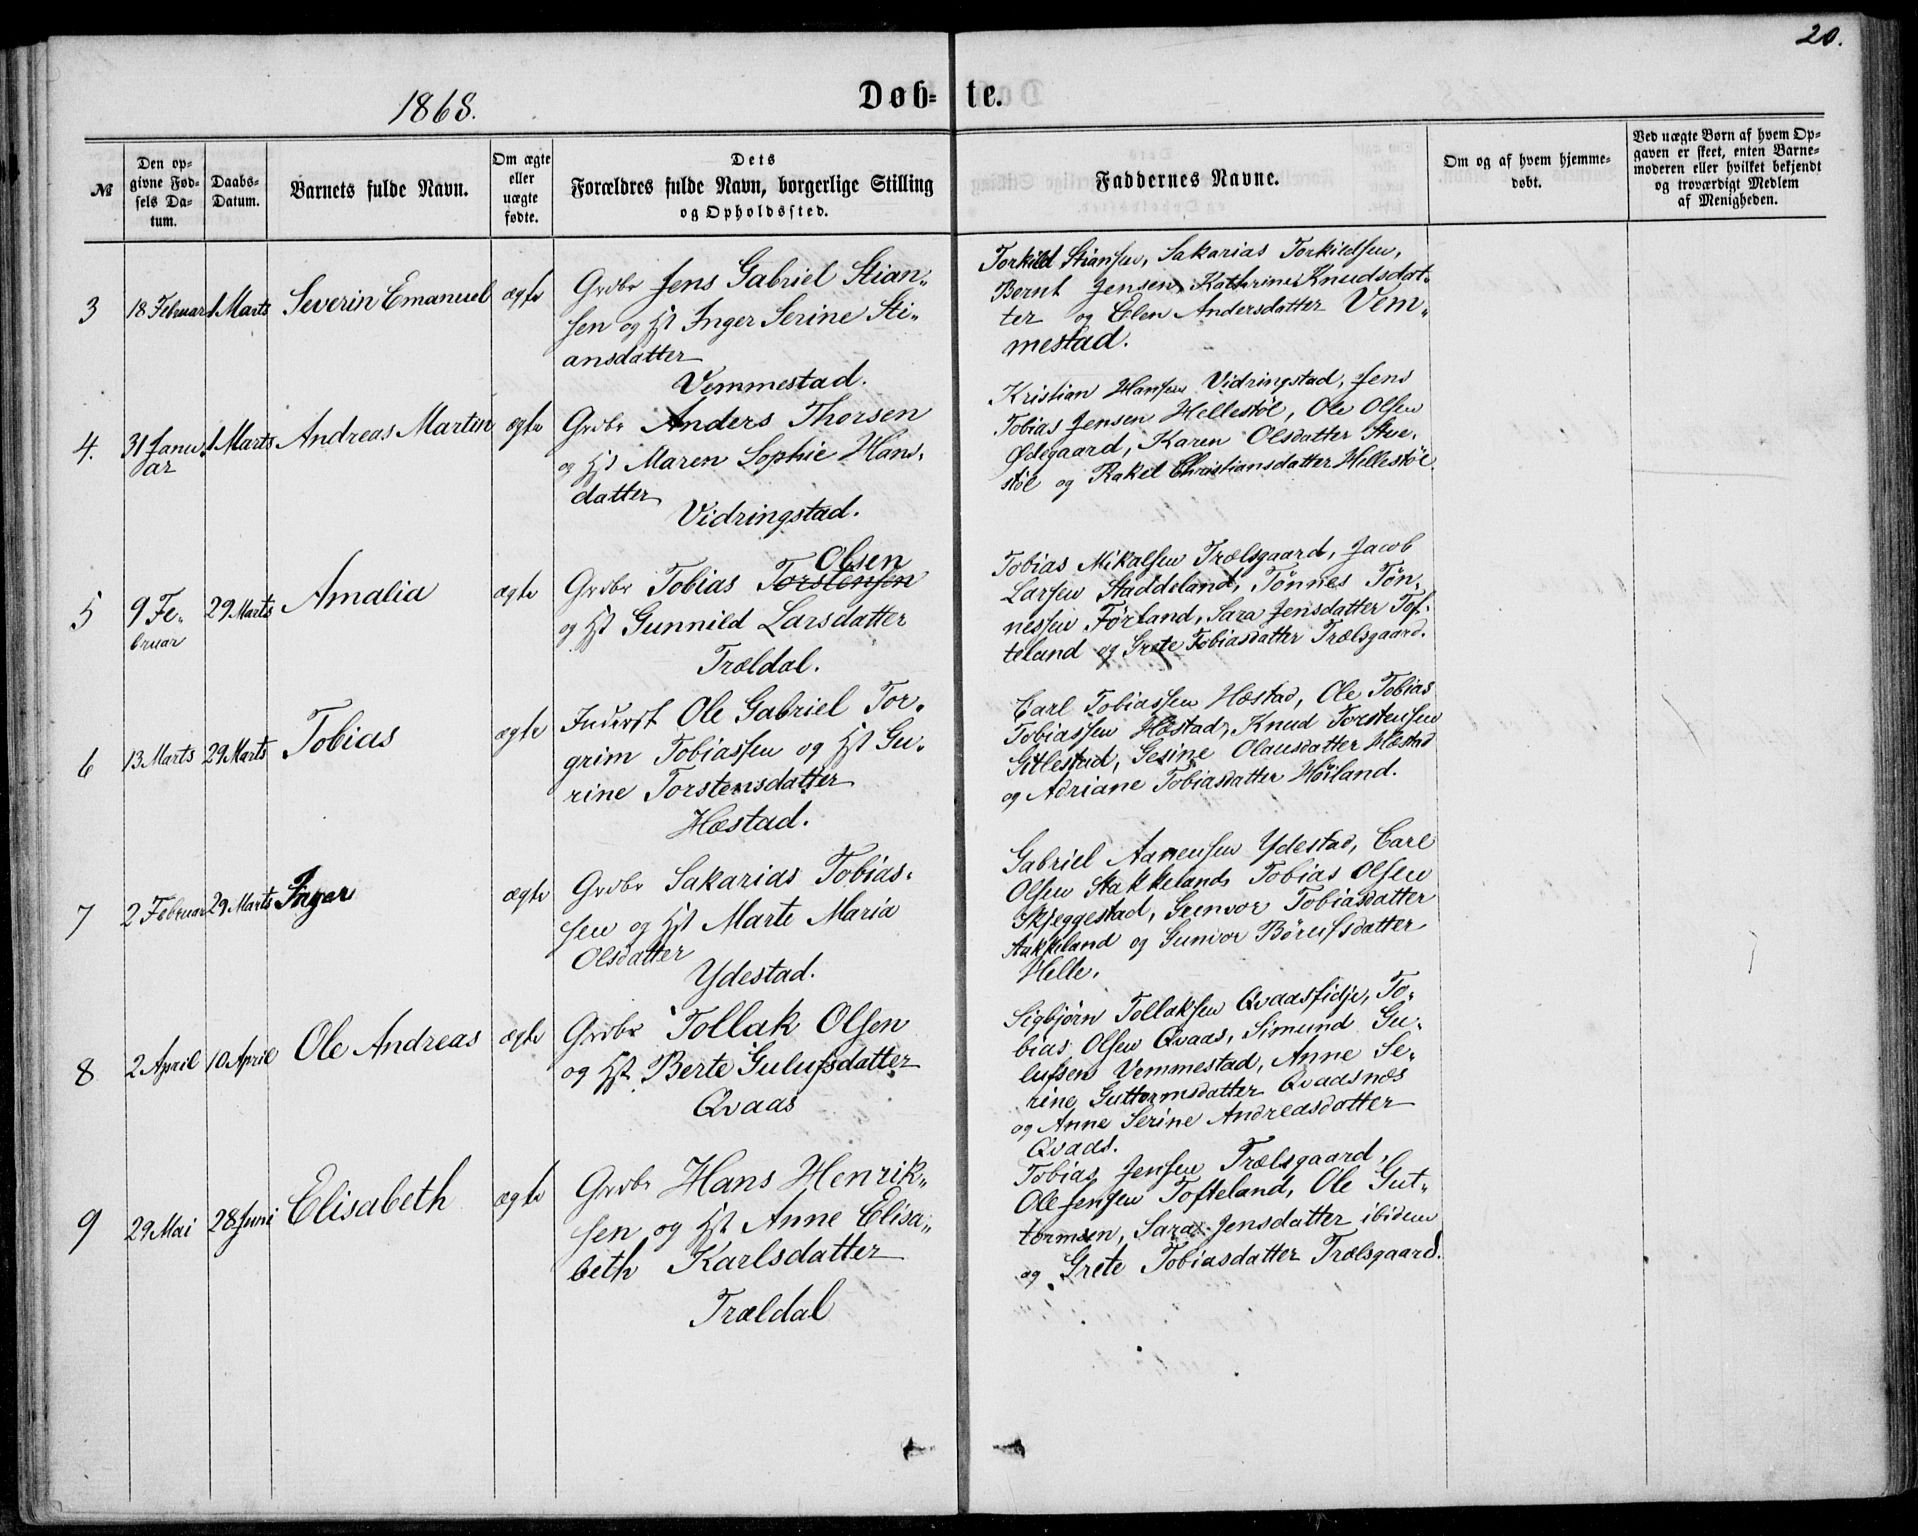 20.
1868.
Døb-te.
№
Den opgivne Fødsels Datum.
Daabs-Datum.
Barnets fulde Navn.
Om ægte eller uægte fødte.
Dets Forældres fulde Navn, borgerlige Stilling og Opholdssted.
Faddernes Navne.
Om og af hvem hjemmedøbt.
Ved uægte Børn af hvem Opgaven er skeet, enten Barnemoderen eller hvilket bekjendt og troværdigt Medlem af Menigheden.
3
18 Februar
1 Marts
Severin Emanuel
ægte
Grdbr Jens Gabriel Stian-
sen og Hst Inger Serine Sti-
ansdatter
Vemmestad.
Torkild Stiansen, Sakarias Torkildsen,
Bernt Jensen, Kathrine Knudsdat-
ter og Elen Andersdatter Vem-
mestad.
4.
31 Janu-
ar
1 Marts
Andreas Martin
ægte
Grdbr Anders Thorsen
og Hst Maren Sophie Hans-
datter
Vidringstad.
Kristian Hansen Vidringstad, Jens
Tobias Jensen Hellestøl, Ole Olsen
Ødegaard, Karen Olsdatter Stue-
støl og Rakel Christiansdatter Hillestøl
5
9 Fe-
bruar
29 Marts
Amalia
ægte
Olsen
Grdbr Tobias Torstensen
og Hst Gunnild Larsdatter
Trældal.
Tobias Mikalsen Trælsgaard, Jacob
Larsen Staddeland, Tønnes Tøn-
nessen Førland, Sara Jensdatter Tof-
teland og Grete Tobiasdatter Trælsgaard.
6
13 Marts
29 Marts
Tobias
ægte
Inderst Ole Gabriel Tor-
grim Tobiassen og Hst Gu-
rine Torstensdatter
Hæstad.
Carl Tobiassen Hæstad, Ole Tobias
Tobiassen Hæstad, Knud Torstensen
Gitlestad, Gesine Olausdatter Hæstad
og Adriane Tobiasdatter Høiland.
7
2 Februar
29 Marts
Inger
ægte
Grdbr Sakarias Tobias-
sen og Hst Marte Maria
Olsdatter
Ydestad.
Gabriel Aanensen Ydestad, Carl
Olsen Stakkeland, Tobias Olsen
Skjeggestad, Gunvor Tobiasdatter
Stakkeland og Gunvor Børufsdatter
Helle.
8
2 April
10 April
Ole Andreas
ægte
Grdbr Tollak Olsen
og Hst Berte Gulufsdatter
Qvaas
Sigbjørn Tollaksen Qvaasfidje, To-
bias Olsen Qvaas, Simund Gu-
lufsen Vemmestad, Anne Se-
rine Guttormsdatter Qvaasnæs
og Anne Serine Andreasdatter
Qvaas.
9
29 Mai
28 Juni
Elisabeth
ægte
Grdbr Hans Henrik-
sen og Hst Anne Elisa-
beth Karlsdatter
Trældal
Tobias Jensen Trælsgaard,
Ole Jensen Tofteland, Ole Gut-
tormsen, Sara Jensdatter ibidem
og Grete Tobiasdatter Trælsgaard.